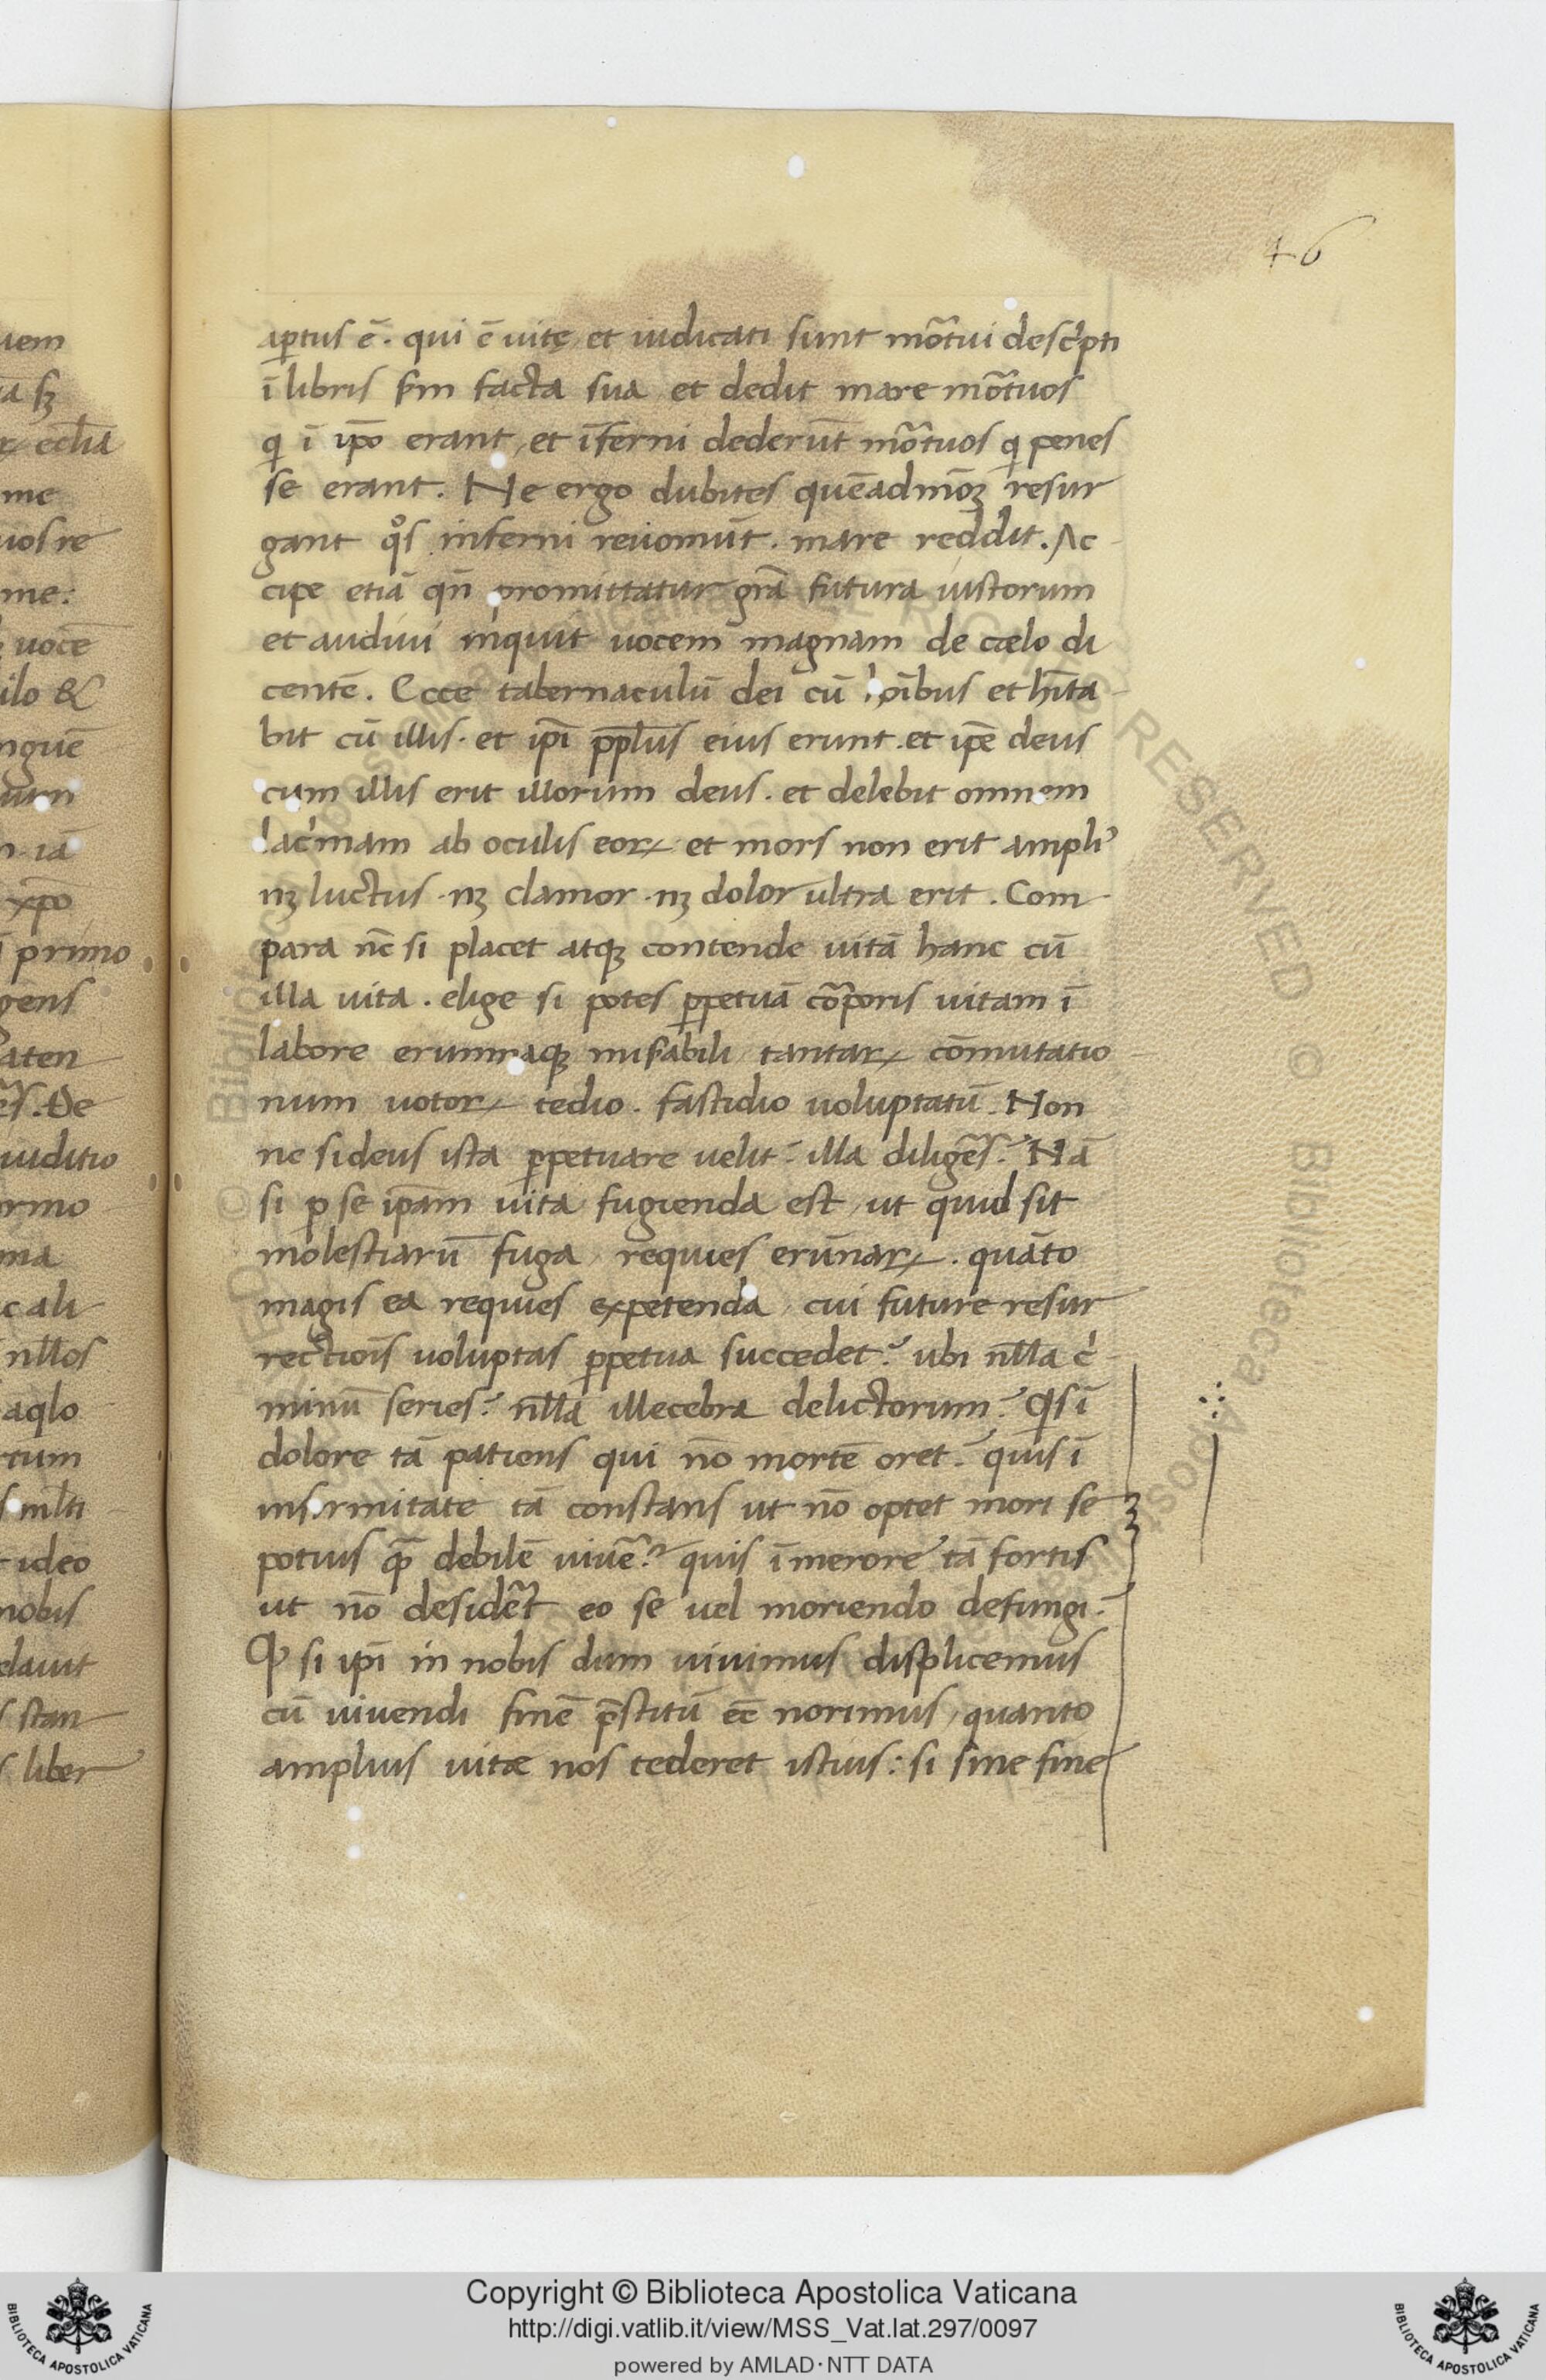 46
aꝑtus ē. qui ē uitę et iudicati sunt mõtui desc̍pti
ī libris ẜm facta sua et dedit mare mõtuos
q̍ ī ip̄o erant, et īferni dederūt mõtuos q̍ penes
se erant. Ne ergo dubites quēadmōꝫ resur
gant qͦs inferni reuomūt. mare reddit. Ac
cipe etiā qn̄ promittatur grā futura iustorum
et audiui inquit uocem magnam de cælo di
centē. Ecce tabernaculū dei cū hoībus et hīta
bit cū illis. et ip̄i pp̄lus eius erunt. et ip̄e deus
cum illis erit illorum deus. et delebit omnem
lac̍mam ab oculis eoꝝ et mors non erit ampliꝰ
nꝫ luctus. nꝫ clamor. nꝫ dolor ultra erit. Com
para nc̄ si placet atqꝫ contende uitā hanc cū
illa uita. elige si potes ꝑpetuā cõporis uitam ī
labore erumnaqꝫ miẜabili tantaꝝ cōmutatio
num uotoꝝ tedio. fastidio uoluptatū. Non
ne si deus ista ꝑpetuare uelit? illa diligēs? Nā
si ꝑ se ip̄am uita fugienda est, ut quid sit
molestiarū fuga, requies erūnaꝝ. quāto
magis ea requies expetenda, cui future resur
rectiois̄ uoluptas ꝑpetua succedet? ubi nlla c̍
minū series? nlla illecebra delictorum? Q̍s ī
dolore tā patiens qui nō mortē oret? quis ī
infirmitate tā constans ut nō optet mori se
potius qꝫ̄ debilē uiuē? quis ī merore tā fortis
ut nō desidēt eo se uel moriendo defungi?
Ꝙ si ip̄i in nobis dum uiuimus displicemus
cū uiuendi finē p̄stitū eē norimus, quanto
amplius uitæ nos tederet istius: si sine fine
Copyright © Biblioteca Apostolica Vaticana
http://digi.vatlib.it/view/MSS_Vat.lat.297/0097
powered by AMLAD·NTT DATA